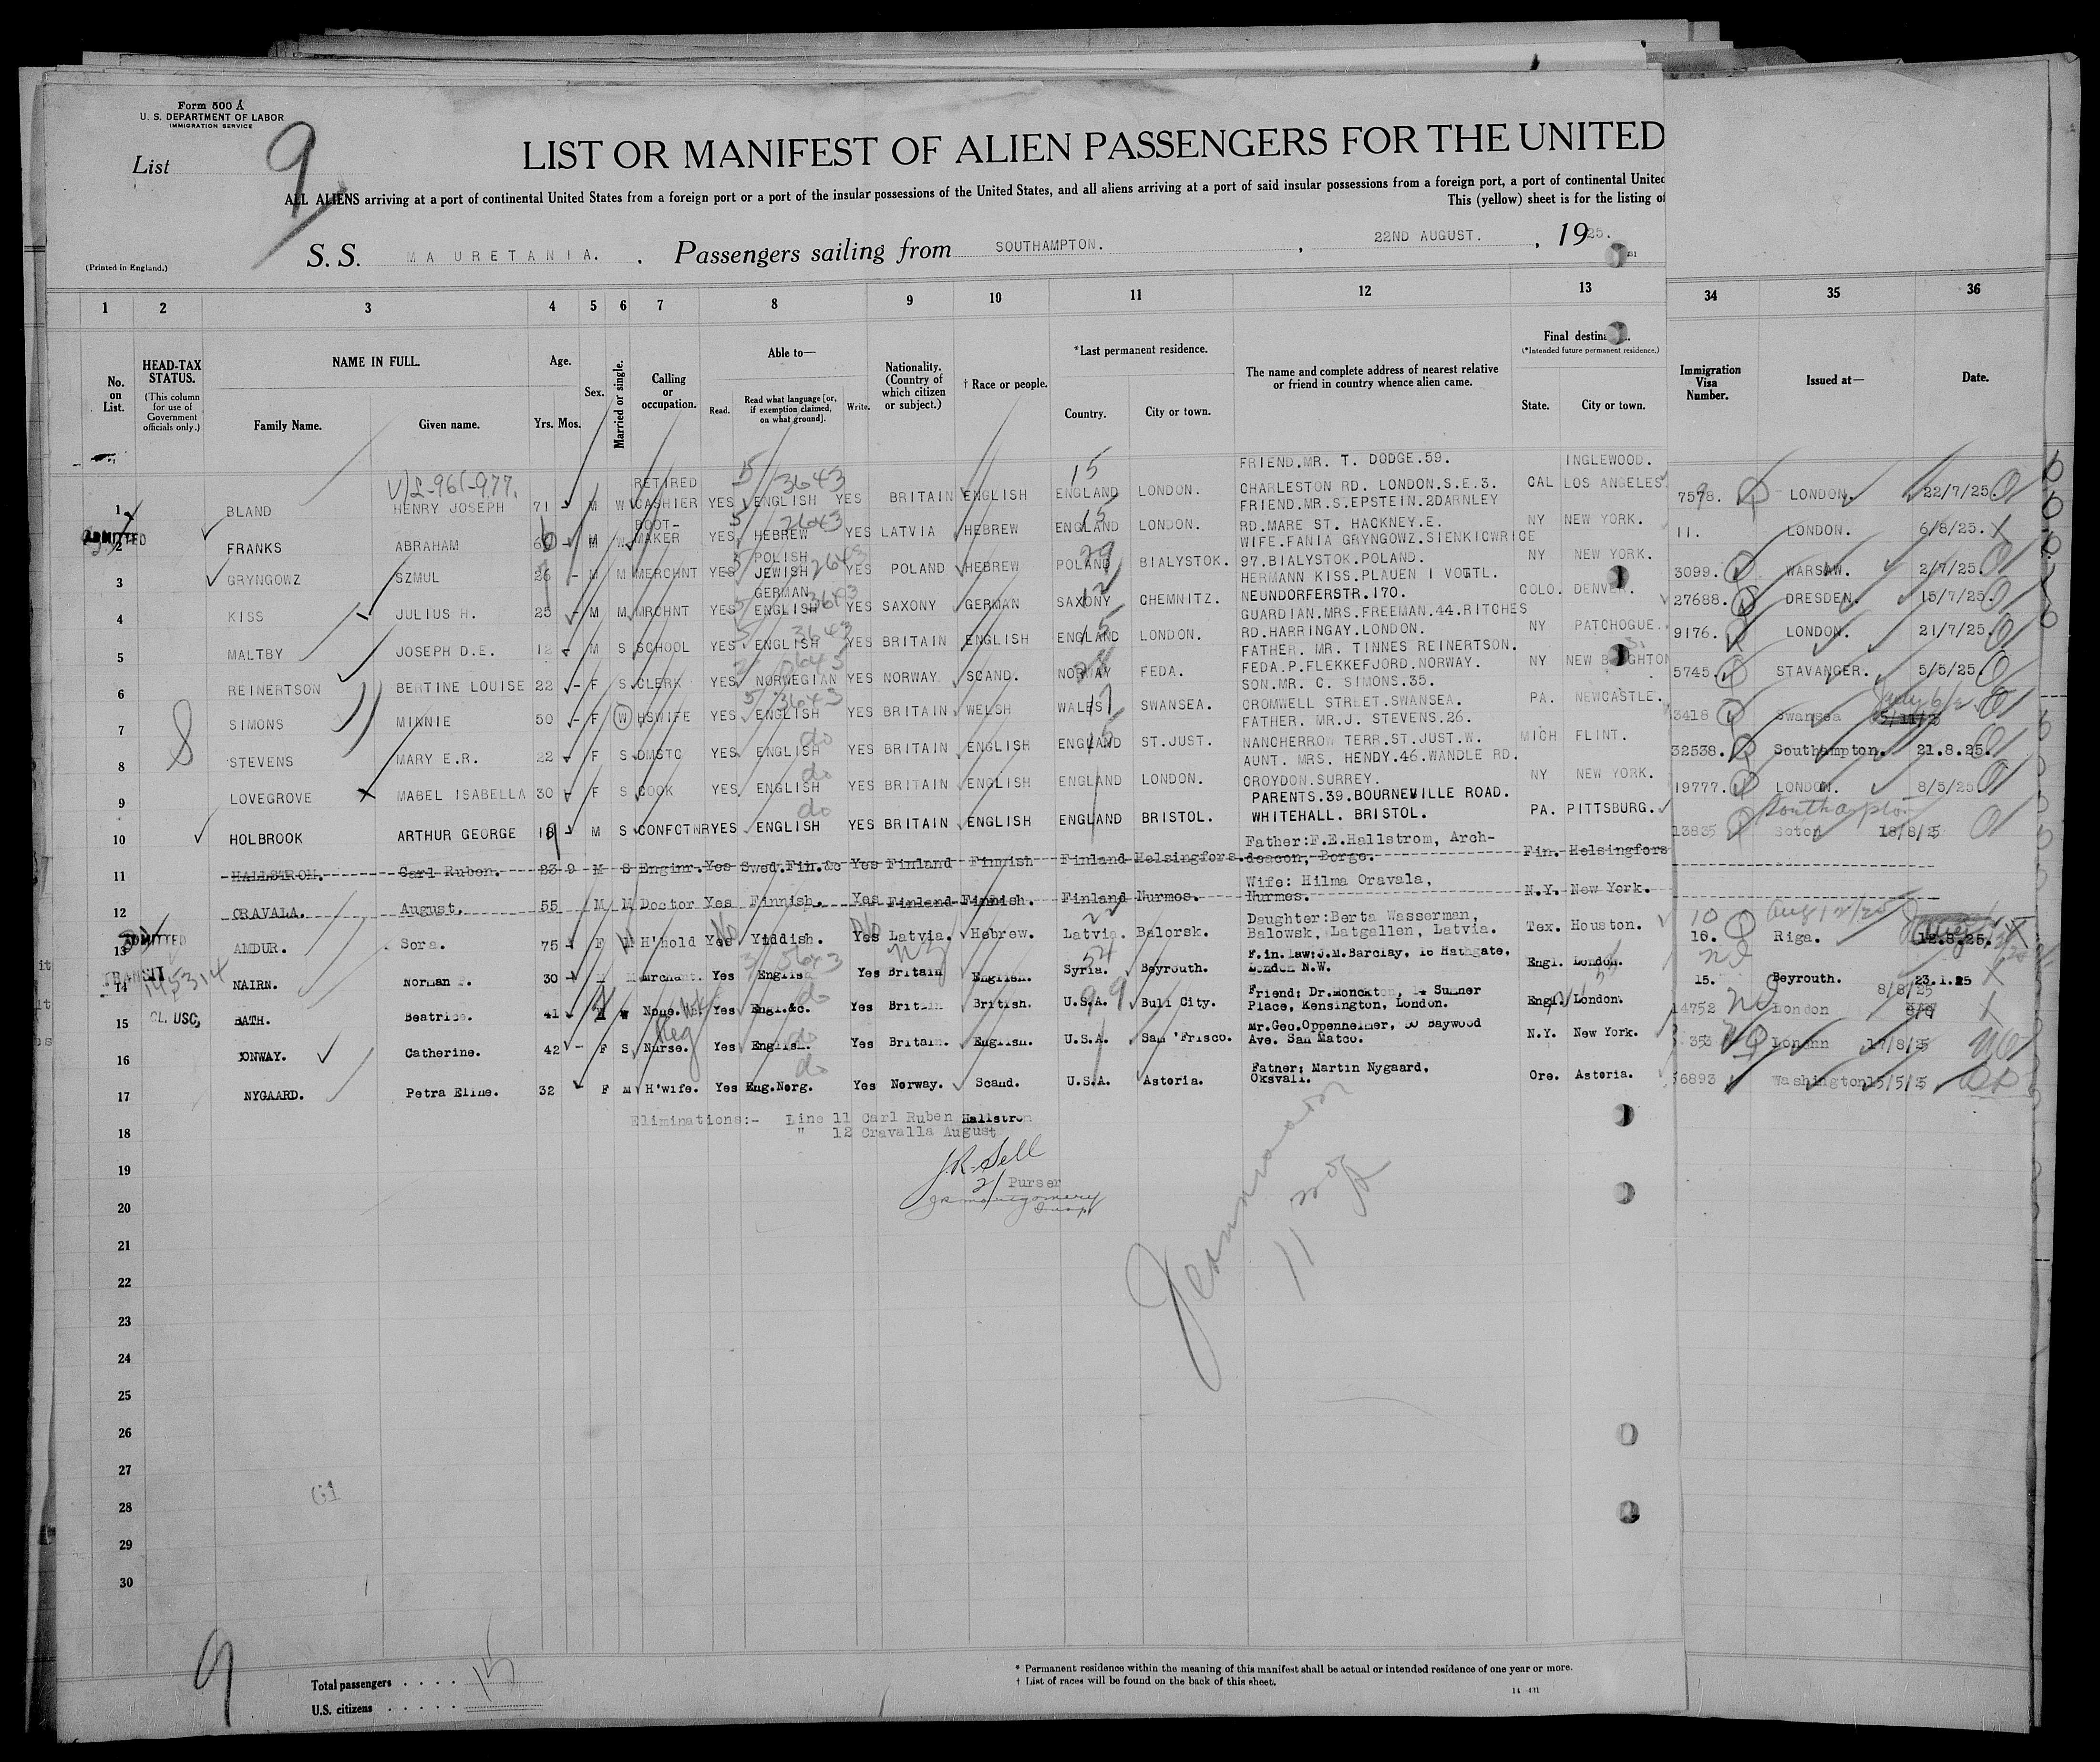 Form 500 A
U. S. DEPARTMENT OF LABOR
IMMIGRATION SERVICE
List 9
LIST OR MANIFEST OF ALIEN PASSENGERS FOR THE UNITED
ALL ALIENS arriving at a port of continental United States from a foreign port or a port of the insular possessions of the United States, and all aliens arriving at a port of said insular possessions from a foreign port, a port of continental United
This (yellow) sheet is for the listing of
S. S. MAURETANIA. Passengers sailing from SOUTHAMPTON. , 22ND AUGUST. , 1925.
(Printed in England.)
1 2 3 4 5 6 7 8 9 10 11 12 13 34 35 36
No. on List.
HEAD-TAX STATUS. (This column for use of Government officials only.)
NAME IN FULL. Family Name. Given name.
Age. Yrs. Mos.
Sex.
Married or single.
Calling or occupation.
Able to— Read. Read what language [or, if exemption claimed, on what ground]. Write.
Nationality. (Country of which citizen or subject.)
† Race or people.
*Last permanent residence. Country. City or town.
The name and complete address of nearest relative or friend in country whence alien came.
Final destina (*Intended future permanent residence.) State. City or town.
Immigration Visa Number.
Issued at—
Date.
V/L-961-977.
1 BLAND HENRY JOSEPH 71 M W RETIRED CASHIER YES ENGLISH YES BRITAIN ENGLISH ENGLAND LONDON. FRIEND.MR. T. DODGE.59. CHARLESTON RD. LONDON.S.E.3. CAL INGLEWOOD. LOS ANGELES 7598. LONDON. 22/7/25.
ADMITTED
2 FRANKS ABRAHAM 60 M W BOOT-MAKER YES HEBREW YES LATVIA HEBREW ENGLAND LONDON. FRIEND.MR.S.EPSTEIN.2DARNLEY RD.MARE ST. HACKNEY.E. NY NEW YORK. 11. LONDON. 6/8/25.
3 GRYNGOWZ SZMUL 26 M M MERCHNT YES POLISH JEWISH YES POLAND HEBREW POLAND BIALYSTOK. WIFE.FANIA GRYNGOWZ.SIENKICWRICE 97.BIALYSTOK.POLAND. NY NEW YORK. 3099. WARSAW. 2/7/25.
4 KISS JULIUS H. 25 M M MRCHNT YES GERMAN ENGLISH YES SAXONY GERMAN SAXONY CHEMNITZ. HERMANN KISS.PLAUEN I VOGTL. NEUNDORFERSTR.170. COLO. DENVER. 27688. DRESDEN. 15/7/25.
5 MALTBY JOSEPH D.E. 12 M S SCHOOL YES ENGLISH YES BRITAIN ENGLISH ENGLAND LONDON. GUARDIAN.MRS.FREEMAN.44.RITCHES RD.HARRINGAY.LONDON. NY PATCHOGUE. 9176. LONDON. 21/7/25.
6 REINERTSON BERTINE LOUISE 22 F S CLERK YES NORWEGIAN YES NORWAY SCAND. NORWAY FEDA. FATHER. MR. TINNES REINERTSON. FEDA.P.FLEKKEFJORD.NORWAY. NY NEW B GHTON 5745. STAVANGER. 5/5/25.
7 SIMONS MINNIE 50 F W HSWIFE YES ENGLISH YES BRITAIN WELSH WALES SWANSEA. SON.MR. C. SIMONS.35. CROMWELL STREET.SWANSEA. PA. NEWCASTLE. 3418 Swansea
8 STEVENS MARY E.R. 22 F S DMSTC YES ENGLISH YES BRITAIN ENGLISH ENGLAND ST.JUST. FATHER. MR.J. STEVENS.26. NANCHERROW TERR.ST.JUST.W. MICH FLINT. 32538. Southampton. 21.8.25.
9 LOVEGROVE MABEL ISABELLA 30 F S COOK YES ENGLISH YES BRITAIN ENGLISH ENGLAND LONDON. AUNT. MRS. HENDY.46.WANDLE RD. CROYDON.SURREY. NY NEW YORK. 19777. LONDON. 8/5/25
10 HOLBROOK ARTHUR GEORGE 19 M S CONFCTNR YES ENGLISH YES BRITAIN ENGLISH ENGLAND BRISTOL. PARENTS.39.BOURNEVILLE ROAD. WHITEHALL. BRISTOL. PA. PITTSBURG. 13835 Southampton Soton 18/8/25
11 HALLSTROM. Carl Ruben. 23 9 M S Enginr. Yes Swed.Fin.&c Yes Finland Finnish Finland Helsingfors. Father:F.E.Hallstrom, Arch-deacon, Borge. Fin. Helsingfors
12 CRAVALA. August. 55 M M Doctor Yes Finnish. Yes Finland Finnish. Finland Nurmes. Wife: Hilma Oravala, Nurmes. N.Y. New York.
ADMITTED
13 AMDUR. Sora. 75 F H'hold Yes No Yiddish. Yes No Latvia. Hebrew. Latvia. Balorsk. Daughter:Berta Wasserman, Balowsk, Latgalien, Latvia. Tex. Houston. 10 16. Riga. 12.8.25.
TRANSIT 145314
14 NAIRN. Norman 30 Merchant. Yes English Yes Britain English. Syria. Beyrouth. F.in.law:J.M.Barclay, 16 Hathgate, London N.W. Engl. London. 15. Beyrouth. 23.1.25
CL. USC,
15 BATH. Beatrice. 41 W None. Yes Engl.&c. Yes Britain British. U.S.A. Bull City. Friend: Dr.Monckton, 14 Sumner Place, Kensington, London. Engl. London. 14752 London 8/8/25
16 CONWAY. Catherine. 42 F S Reg Nurse. Yes English. Yes Britain. English. U.S.A. San 'Frisco. Mr.Geo.Oppenheimer, 50 Baywood Ave. San Mateo. N.Y. New York. 353 London 17/8/25
17 NYGAARD. Petra Eline. 32 F M H'wife. Yes Eng.Norg. Yes Norway. Scand. U.S.A. Astoria. Father: Martin Nygaard, Oksvall. Ore. Astoria. 56893 Washington 15/5/25
18 Eliminations:- Line 11 Carl Ruben Hallstrom
" 12 Cravalla August
19 J.R. Sell
Purser
20
21
22
23
24
25
26
27
28
29
30
9
Total passengers . . . . 15
U.S. citizens . . . . .
* Permanent residence within the meaning of this manifest shall be actual or intended residence of one year or more.
† List of races will be found on the back of this sheet.